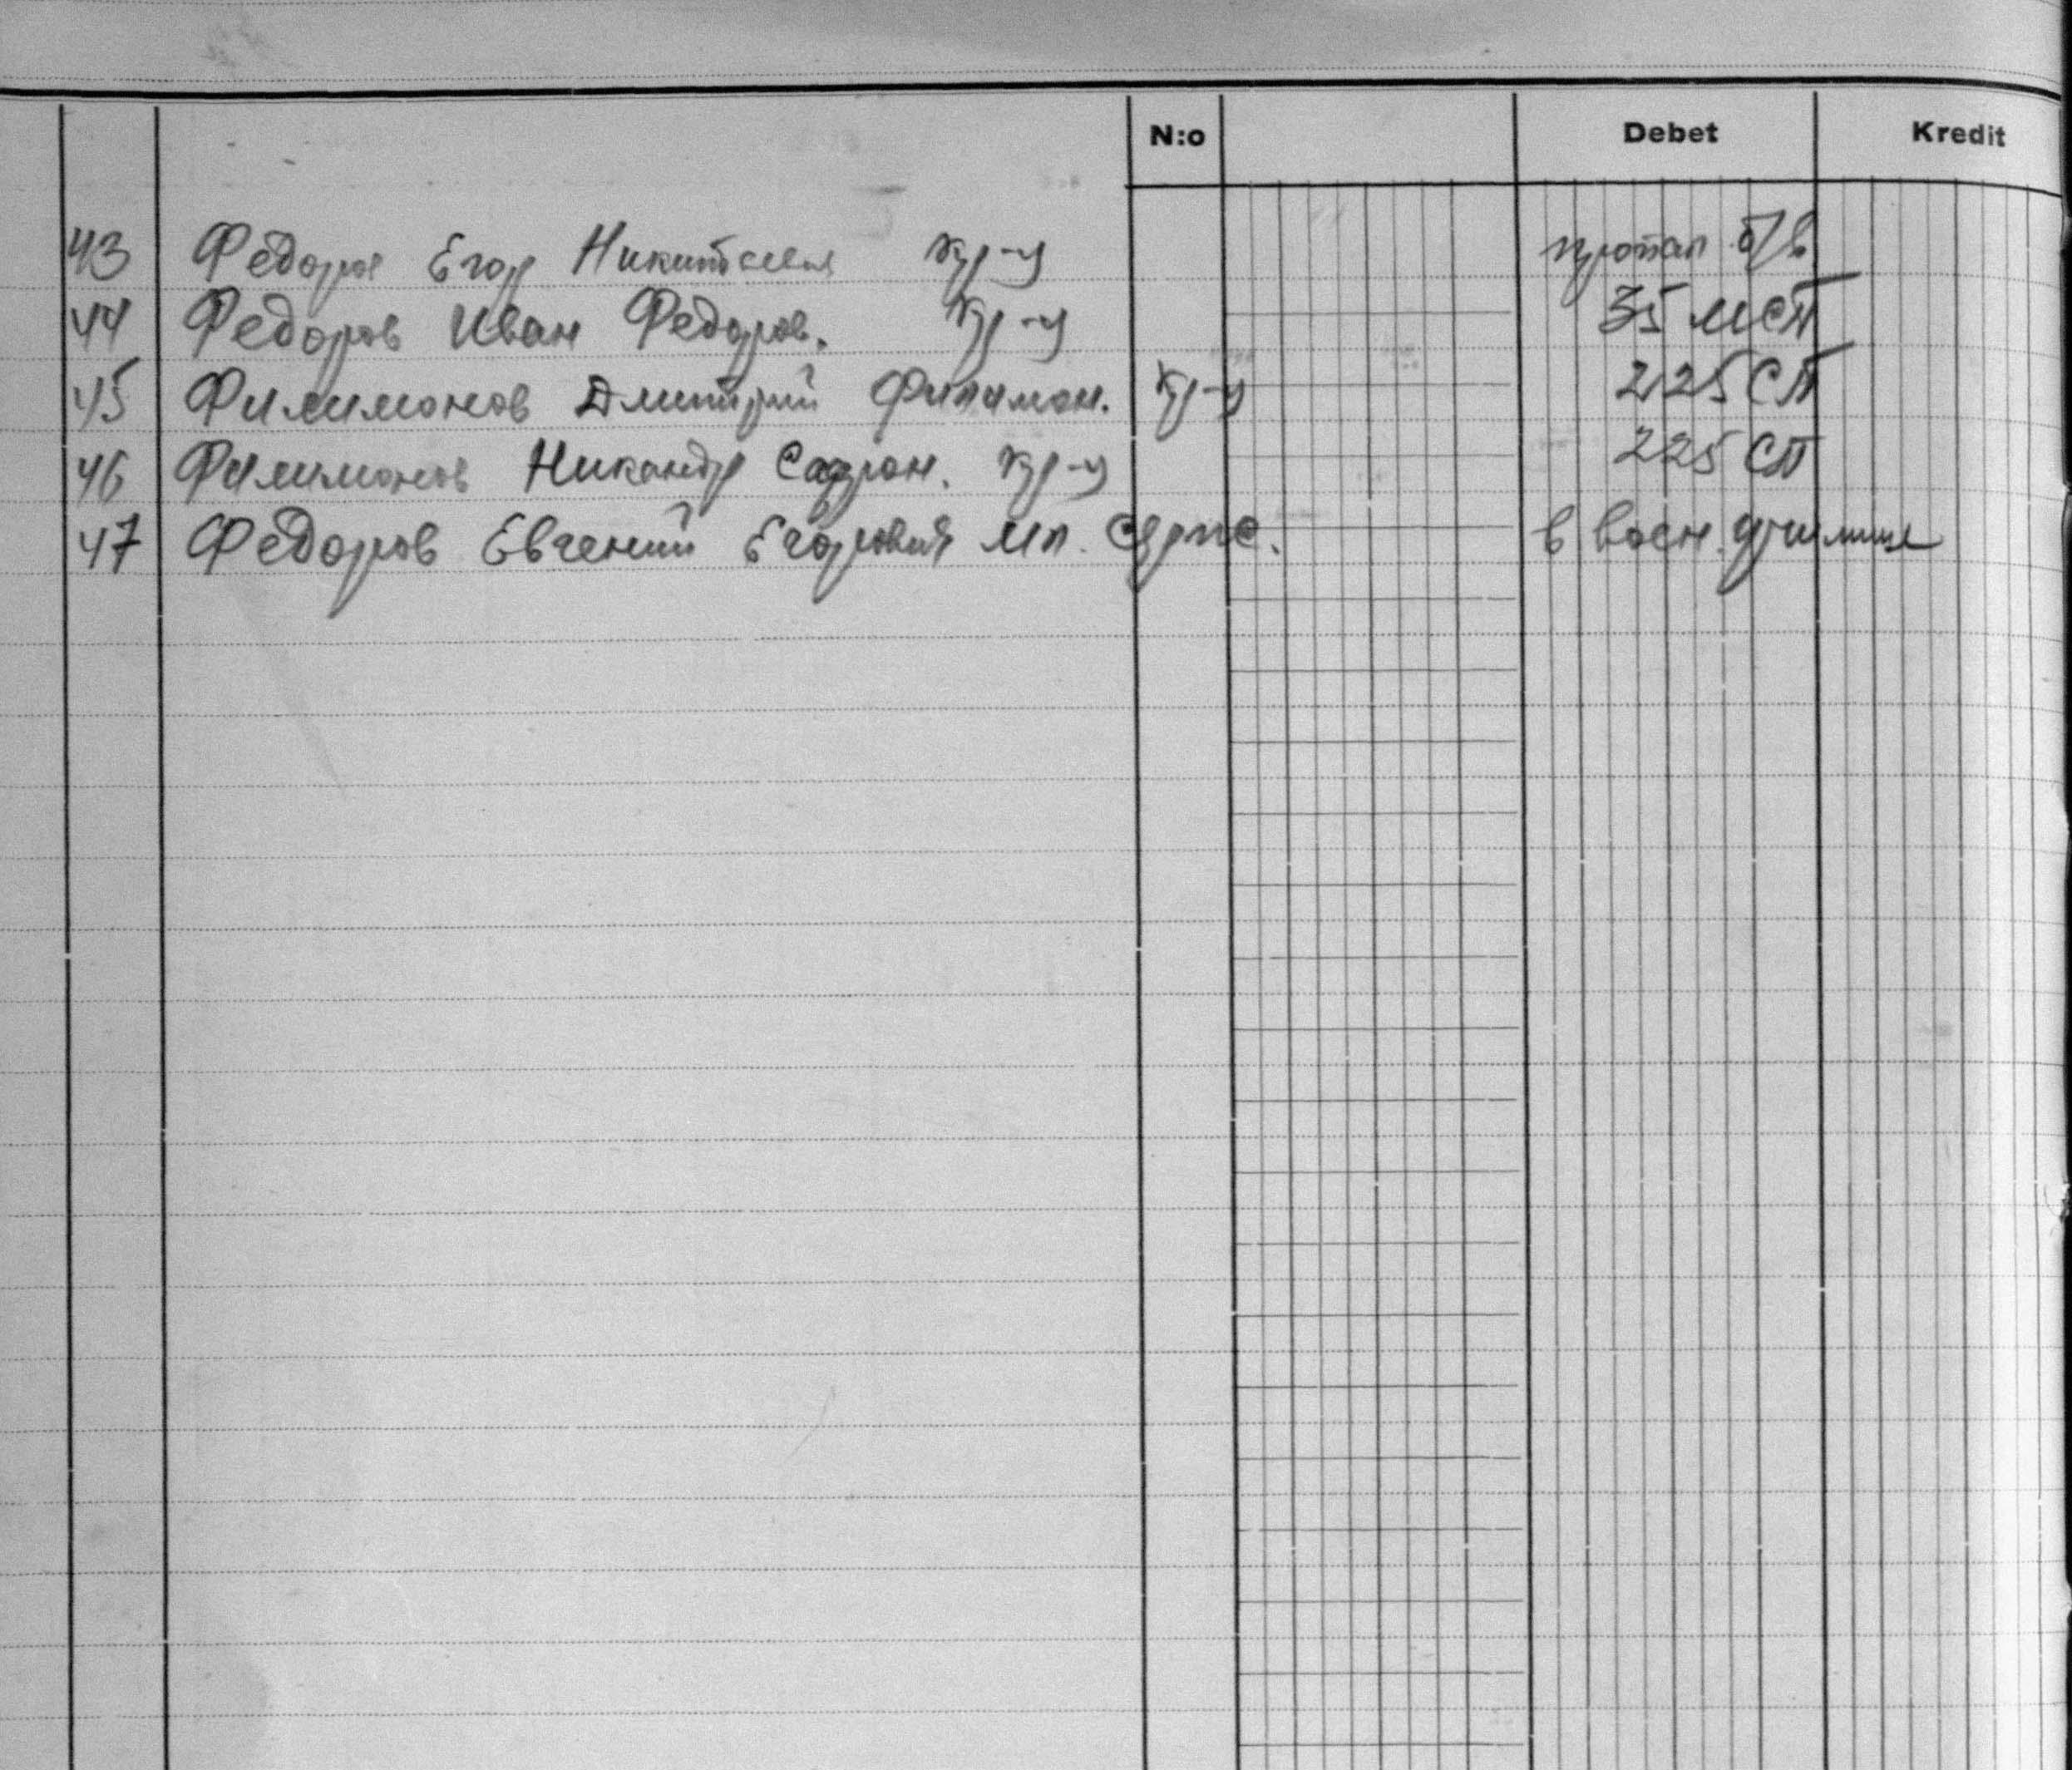 N:o Debet Kredit
43 Федоров Егор Никитаевич кр-ц пропал б/в
44 Федоров Иван Федоров. кр-ц 35 МСП
45 Филимонов Дмитрий Филимон. кр-ц 225 СП
46 Филимонов Никандр Сафрон. кр-ц 225 СП
47 Федоров Евгений Егорович мл. серж. в воен. училище